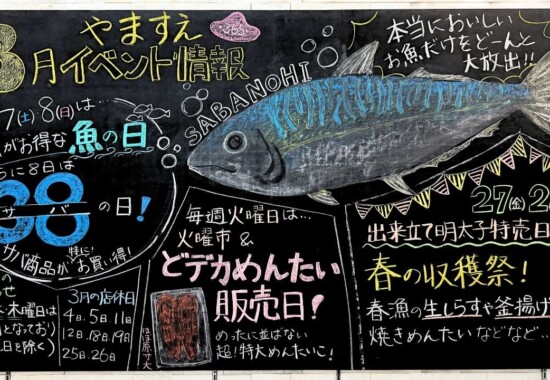 3
やますえ
月イベント情報
7(土)8(日)は…
がお得な魚の日
らに8日は
38の日!
サバ
サバ商品が特に!お買い得!
SABANOHI
本当においしい
お魚だけをどーんと
大放出!!
毎週火曜日は…
火曜市&
どデカめんたい
販売日!
めったに並ばない
超!特大めんたいこ!
ほぼ原寸大
27(金)2
出来立て明太子特売日
春の収穫祭!
春漁の生しらすや釜揚げ
焼きめんたいなどなど…
の
せ
木曜日は
となっており
日を除く)
3月の店休日
4日.5日.11日
12日.18日.19日
25日.26日